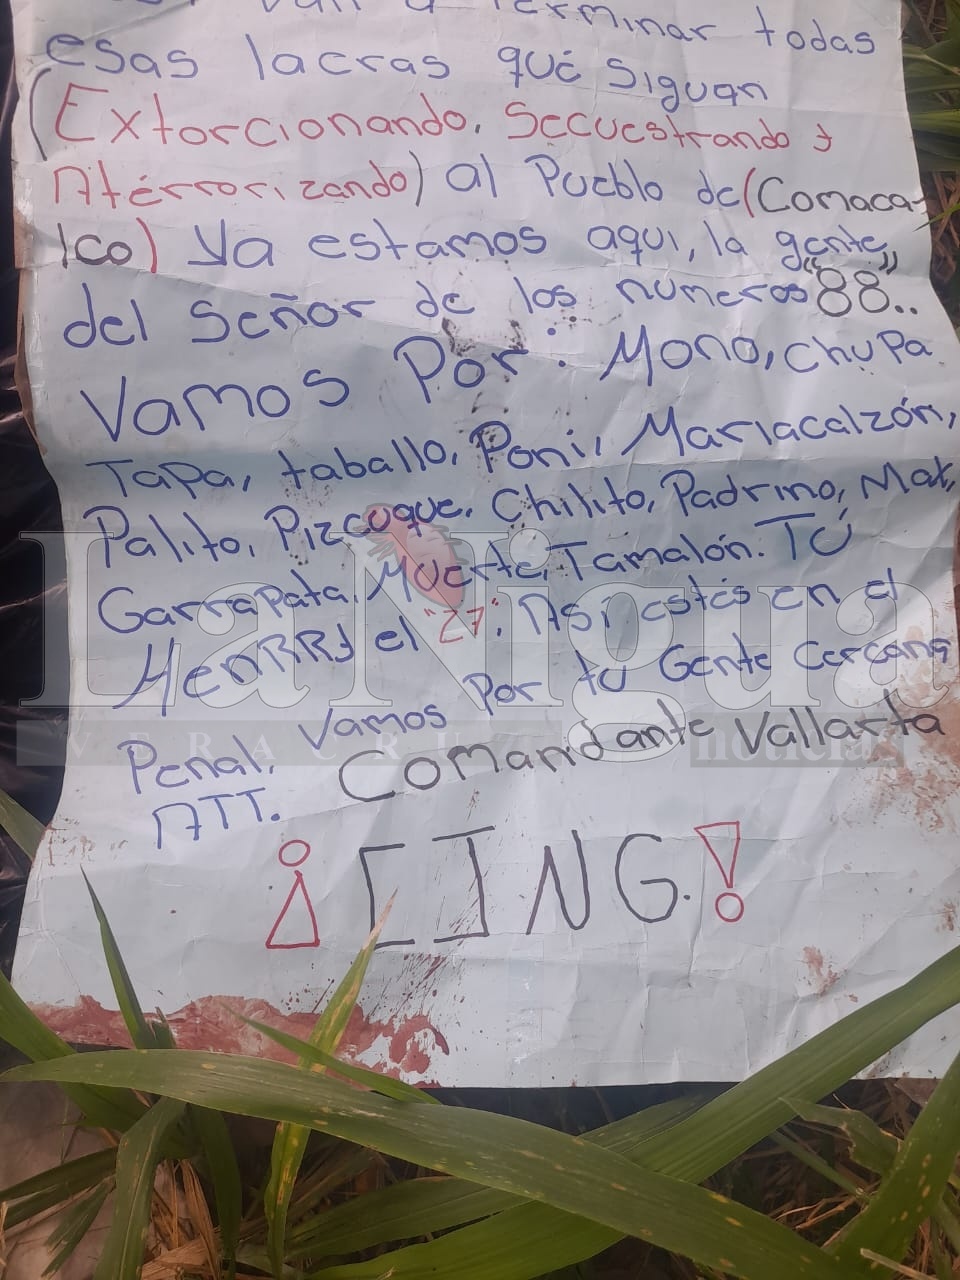 van a terminar todas
esas lacras que siguan
(Extorcionando, Secuestrando y
Atérrorizando) al Pueblo de (Comaca-
lco) Ya estamos aqui, la gente
del Señor de los numeros "88"..
Vamos Por: Mono, Chupa
Tapa, taballo, Poni, Mariacalzón,
Palito, Pizcuque, Chilito, Padrino, Mak,
Garrapata, Muerte, Tamalón. TÚ
HeNRRY el "27". Así estés en el
Penal, Vamos por tu Gente Cercana
ATT. Comandante Vallarta
¡CJNG.!
LaNigua
VERACRUZ noticias